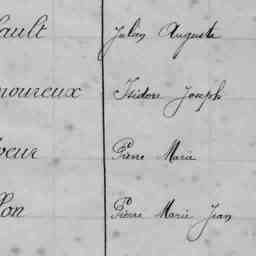 ault Jules Auguste
moureux Isidore Joseph
veur Pierre Marie
lon Pierre Marie Jean